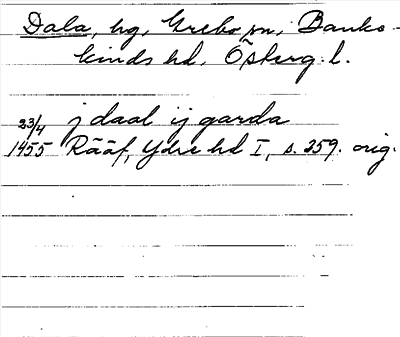 Dala, hg, Grebo sn, Banke-
kinds hd, Österg. l.
23/4 j daal ij garda
1455 Rääf, Ydre hd I, s. 359. orig.